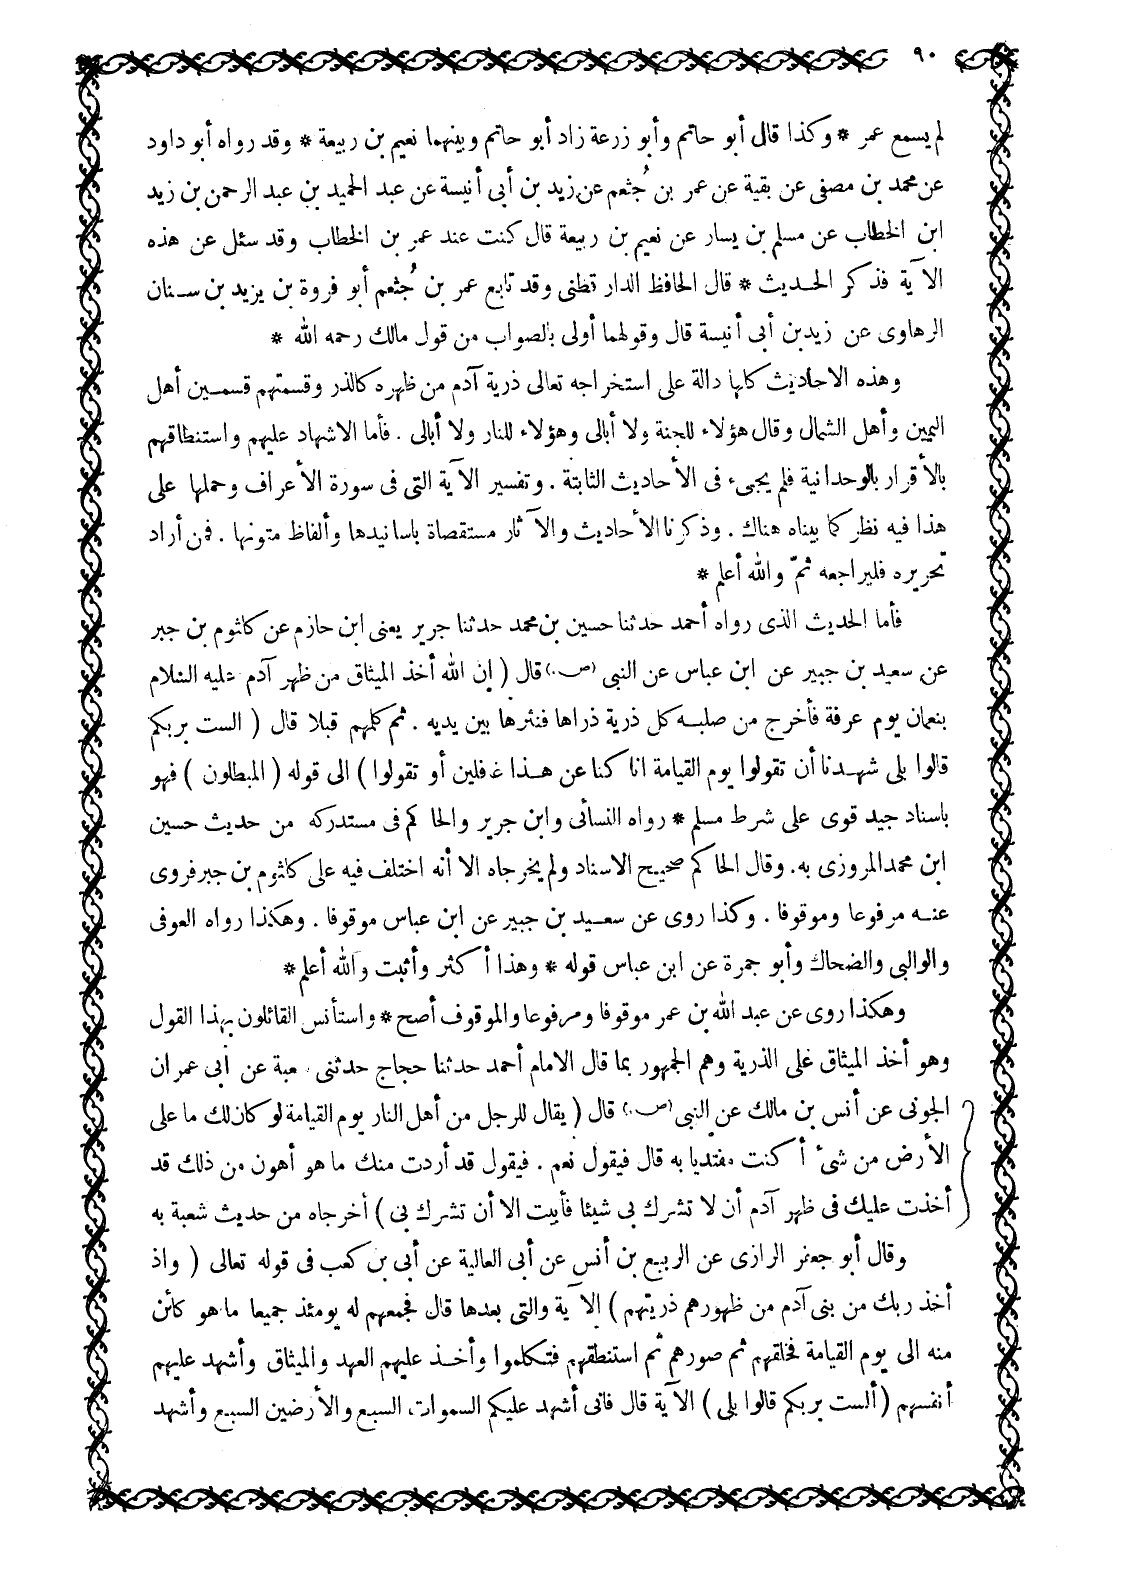 ٩٠
لم يسمع عمر * وكذا قال أبو حاتم وأبو زرعة زاد أبو حاتم وبينهما نعيم بن ربيعة * وقد رواه أبو داود
عن محمد بن مصفى عن بقية عن عمر بن جُثعم عن زيد بن أبى أنيسة عن عبد الحميد بن عبد الرحمن بن زيد
ابن الخطاب عن مسلم بن يسار عن نعيم بن ربيعة قال كنت عند عمر بن الخطاب وقد سئل عن هذه
الآية فذكر الحديث * قال الحافظ الدار قطنى وقد تابع عمر بن جُثعم أبو فروة بن يزيد بن سنان
الرهاوى عن زيد بن أبى أنيسة قال وقولهما أولى بالصواب من قول مالك رحمه الله *
وهذه الاحاديث كلها دالة على استخراجه تعالى ذرية آدم من ظهره كالذر وقسمتهم قسمين أهل
اليمين وأهل الشمال وقال هؤلاء للجنة ولا أبالى وهؤلاء للنار ولا أبالى . فأما الاشهاد عليهم واستنطاقهم
بالأقرار بالوحدانية فلم يجىء فى الأحاديث الثابتة . وتفسير الآية التى فى سورة الأعراف وحملها على
هذا فيه نظر كما بيناه هناك . وذكرنا الأحاديث والآثار مستقصاة باسانيدها وألفاظ متونها . فمن أراد
تحريره فليراجعه ثمّ والله أعلم *
فأما الحديث الذى رواه أحمد حدثنا حسين بن محمد حدثنا جرير يعنى ابن حازم عن كلثوم بن جبر
عن سعيد بن جبير عن ابن عباس عن النبى (ص.) قال ( إن الله أخذ الميثاق من ظهر آدم عليه السلام
بنعمان يوم عرفة فأخرج من صلبه كل ذرية ذراها فنثرها بين يديه . ثم كلمهم قبلا قال ( الست بربكم
قالوا بلى شهدنا أن تقولوا يوم القيامة انا كنا عن هذا غافلين أو تقولوا ) الى قوله ( المبطلون ) فهو
باسناد جيد قوى على شرط مسلم * رواه النسائى وابن جرير والحاكم فى مستدركه من حديث حسين
ابن محمد المروزى به. وقال الحاكم صحيح الاسناد ولم يخرجاه الا أنه اختلف فيه على كلثوم بن جبر فروى
عنه مرفوعا وموقوفا . وكذا روى عن سعيد بن جبير عن ابن عباس موقوفا . وهكذا رواه العوفى
والوالبى والضحاك وأبو جمرة عن ابن عباس قوله * وهذا أكثر وأثبت والله أعلم *
وهكذا روى عن عبد الله بن عمر موقوفا ومرفوعا والموقوف أصح * واستأنس القائلون بهذا القول
وهو أخذ الميثاق على الذرية وهم الجمهور بما قال الامام أحمد حدثنا حجاج حدثنى عبة عن أبى عمران
الجونى عن أنس بن مالك عن النبى (ص.) قال ( يقال للرجل من أهل النار يوم القيامة لو كان لك ما على
الأرض من شىء أكنت مفتديا به قال فيقول نعم . فيقول قد أردت منك ما هو أهون من ذلك قد
أخذت عليك فى ظهر آدم أن لا تشرك بى شيئا فأبيت الا أن تشرك بى ) أخرجاه من حديث شعبة به
وقال أبو جعفر الرازى عن الربيع بن أنس عن أبى العالية عن أبى بن كعب فى قوله تعالى ( واذ
أخذ ربك من بنى آدم من ظهورهم ذريتهم ) الآية والتى بعدها قال فجمعهم له يومئذ جميعا ما هو كائن
منه الى يوم القيامة فخلقهم ثم صورهم ثم استنطقهم فتكلموا وأخذ عليهم العهد والميثاق وأشهد عليهم
أنفسهم ( ألست بربكم قالوا بلى ) الآية قال فانى أشهد عليكم السموات السبع والأرضين السبع وأشهد